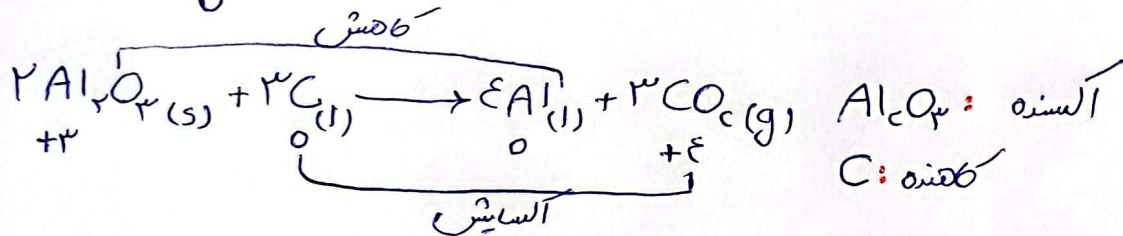 کاهش
۲Al₂O₃(s) + ۳C(l) → ۴Al(l) + ۳CO₂(g)    Al₂O₃: اکسنده
+۳    ۰    ۰    +۴    C: کاهنده
اکسایش